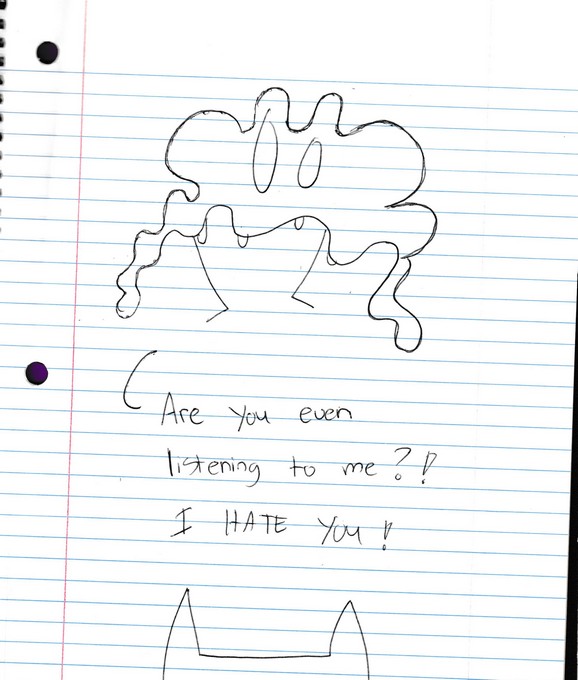 Are you even
listening to me?!
I HATE You!